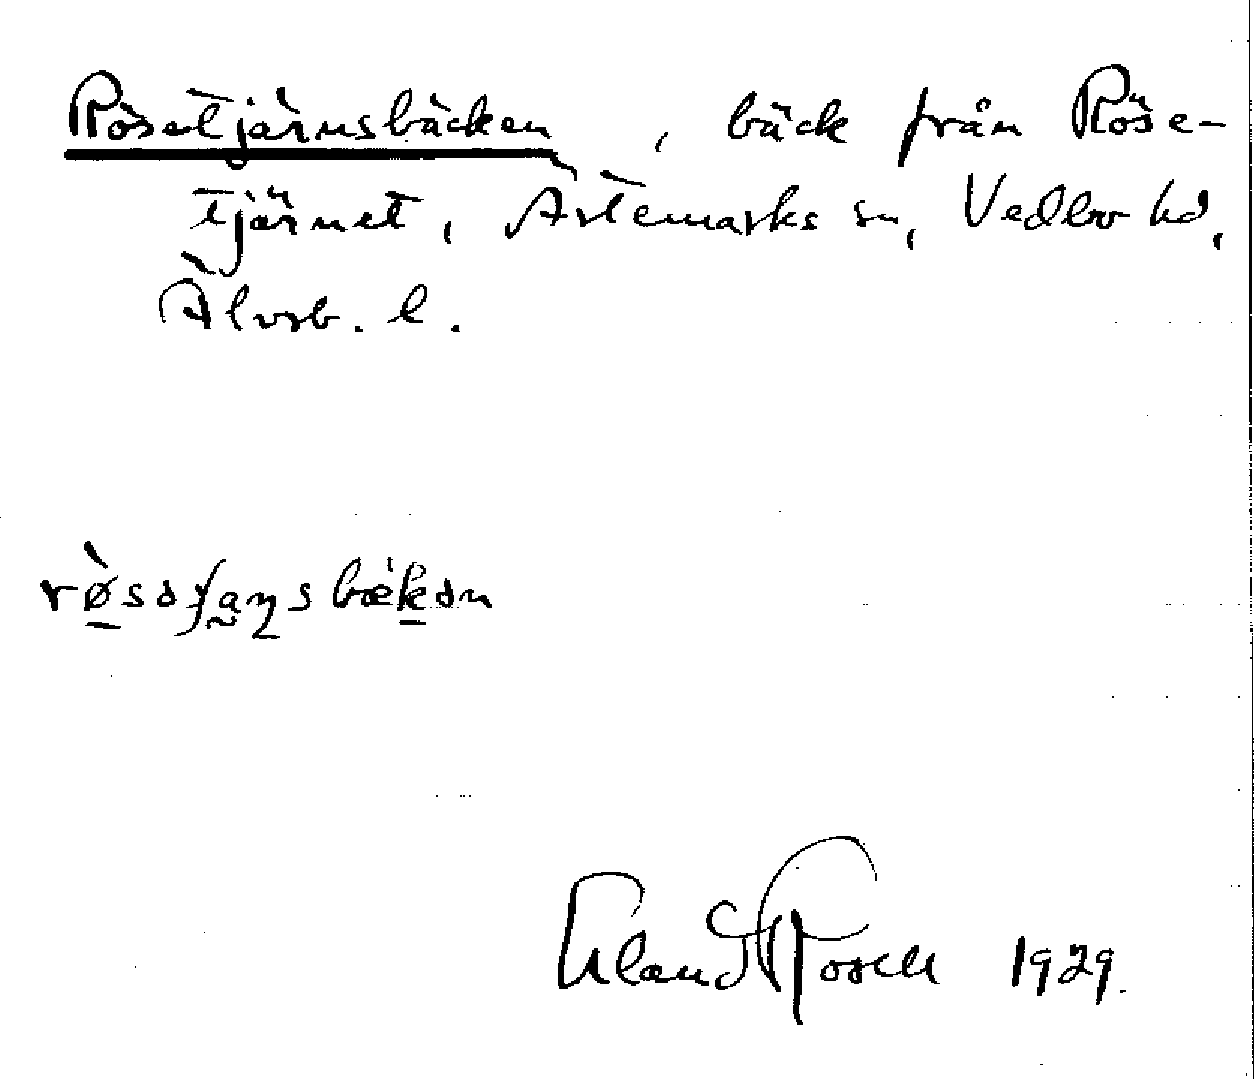 Rösetjärnsbäcken, bäck från Röse-
tjärnet, Ärtemarks sn, Vedbo hd,
Älvsb. l.
rø̀səʃa̰ŋsbækən
Erland Rosell 1929.